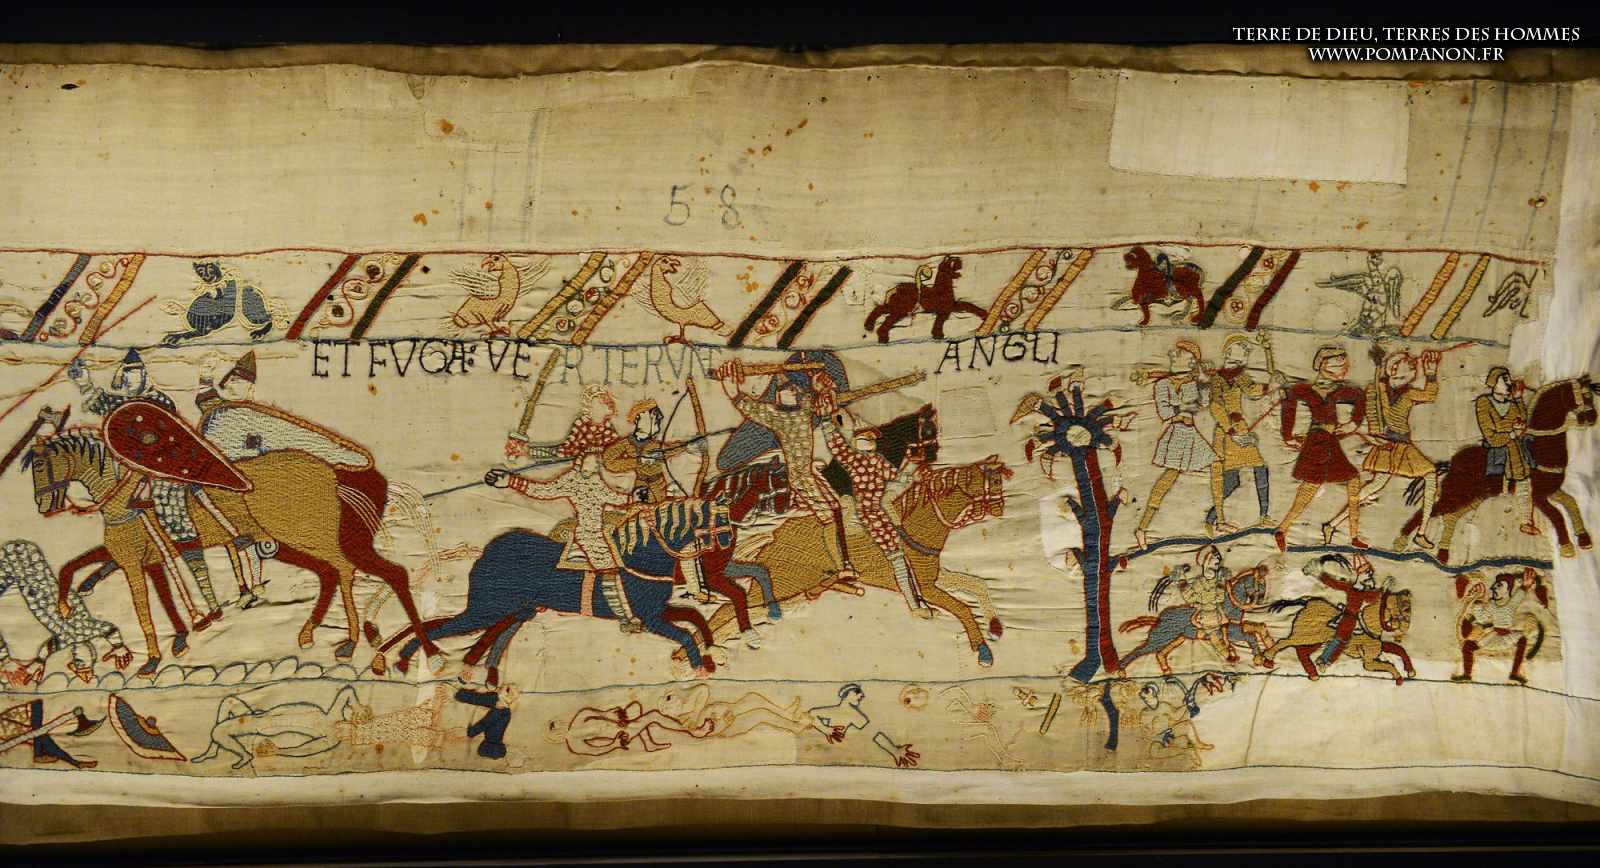 TERRE DE DIEU, TERRES DES HOMMES
WWW.POMPANON.FR
58
ET FVGA: VERTERVNT ANGLI